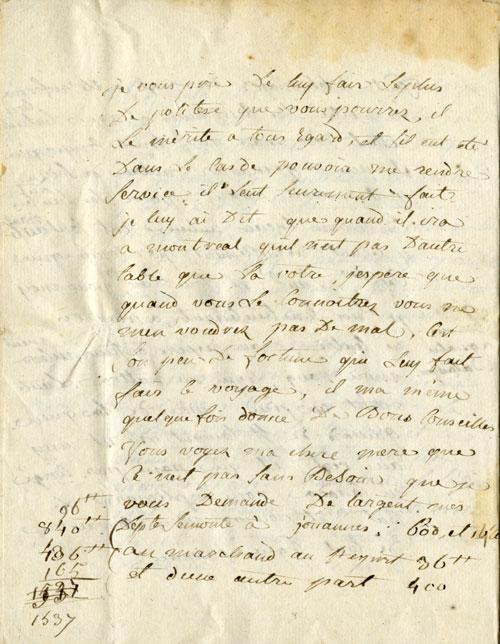 je vous prie De luy fair Le plus
De politese que vous pourrez, il
Le mérite a tous Egard, et s'il eut eté
Dans Le Cas de pouvoir me rendre
Service il L'eut surement fait
je luy ai Dit que quand il ira
a montreal qu'il n'eut pas D'autre
table que la votre, j'espere que
quand vous Le Connoitrez vous ne
m'en voudrez pas De mal, C'est
Son peu De fortune qui Luy fait
fair le voyage, il m'a même
quelque fois donné De Bons Conseilles
Vous voyez ma chere mere que
Ce n'est pas sans Besoin que je
vous Demande De l'argent, mes
Depts se monte à jouannes : 600,
au marchand au 36tt
et d'une autre part 400
96tt
840tt
436tt
165
1537